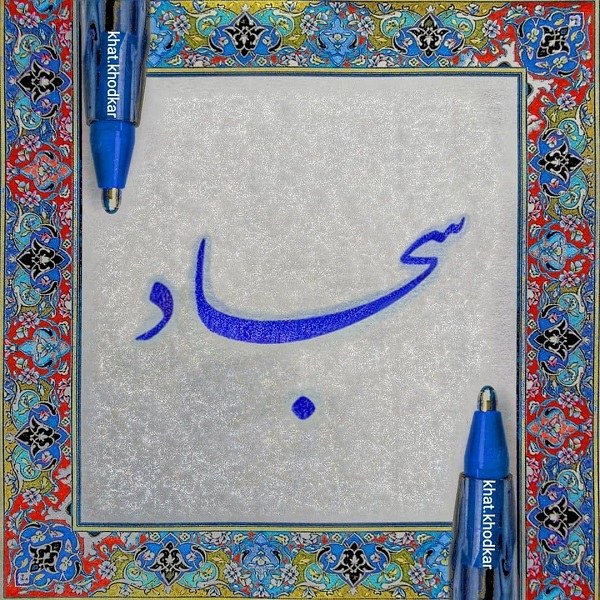 khat.khodkar
سجاد
khat.khodkar